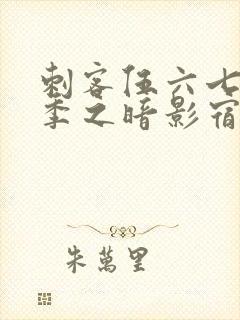 刺客伍六七
季之暗影宿
朱萬里